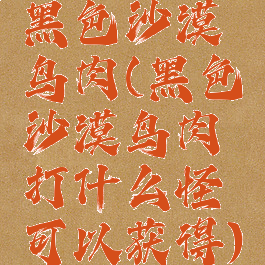 黑色沙漠
鸟肉(黑色
沙漠鸟肉
打什么怪
可以获得)